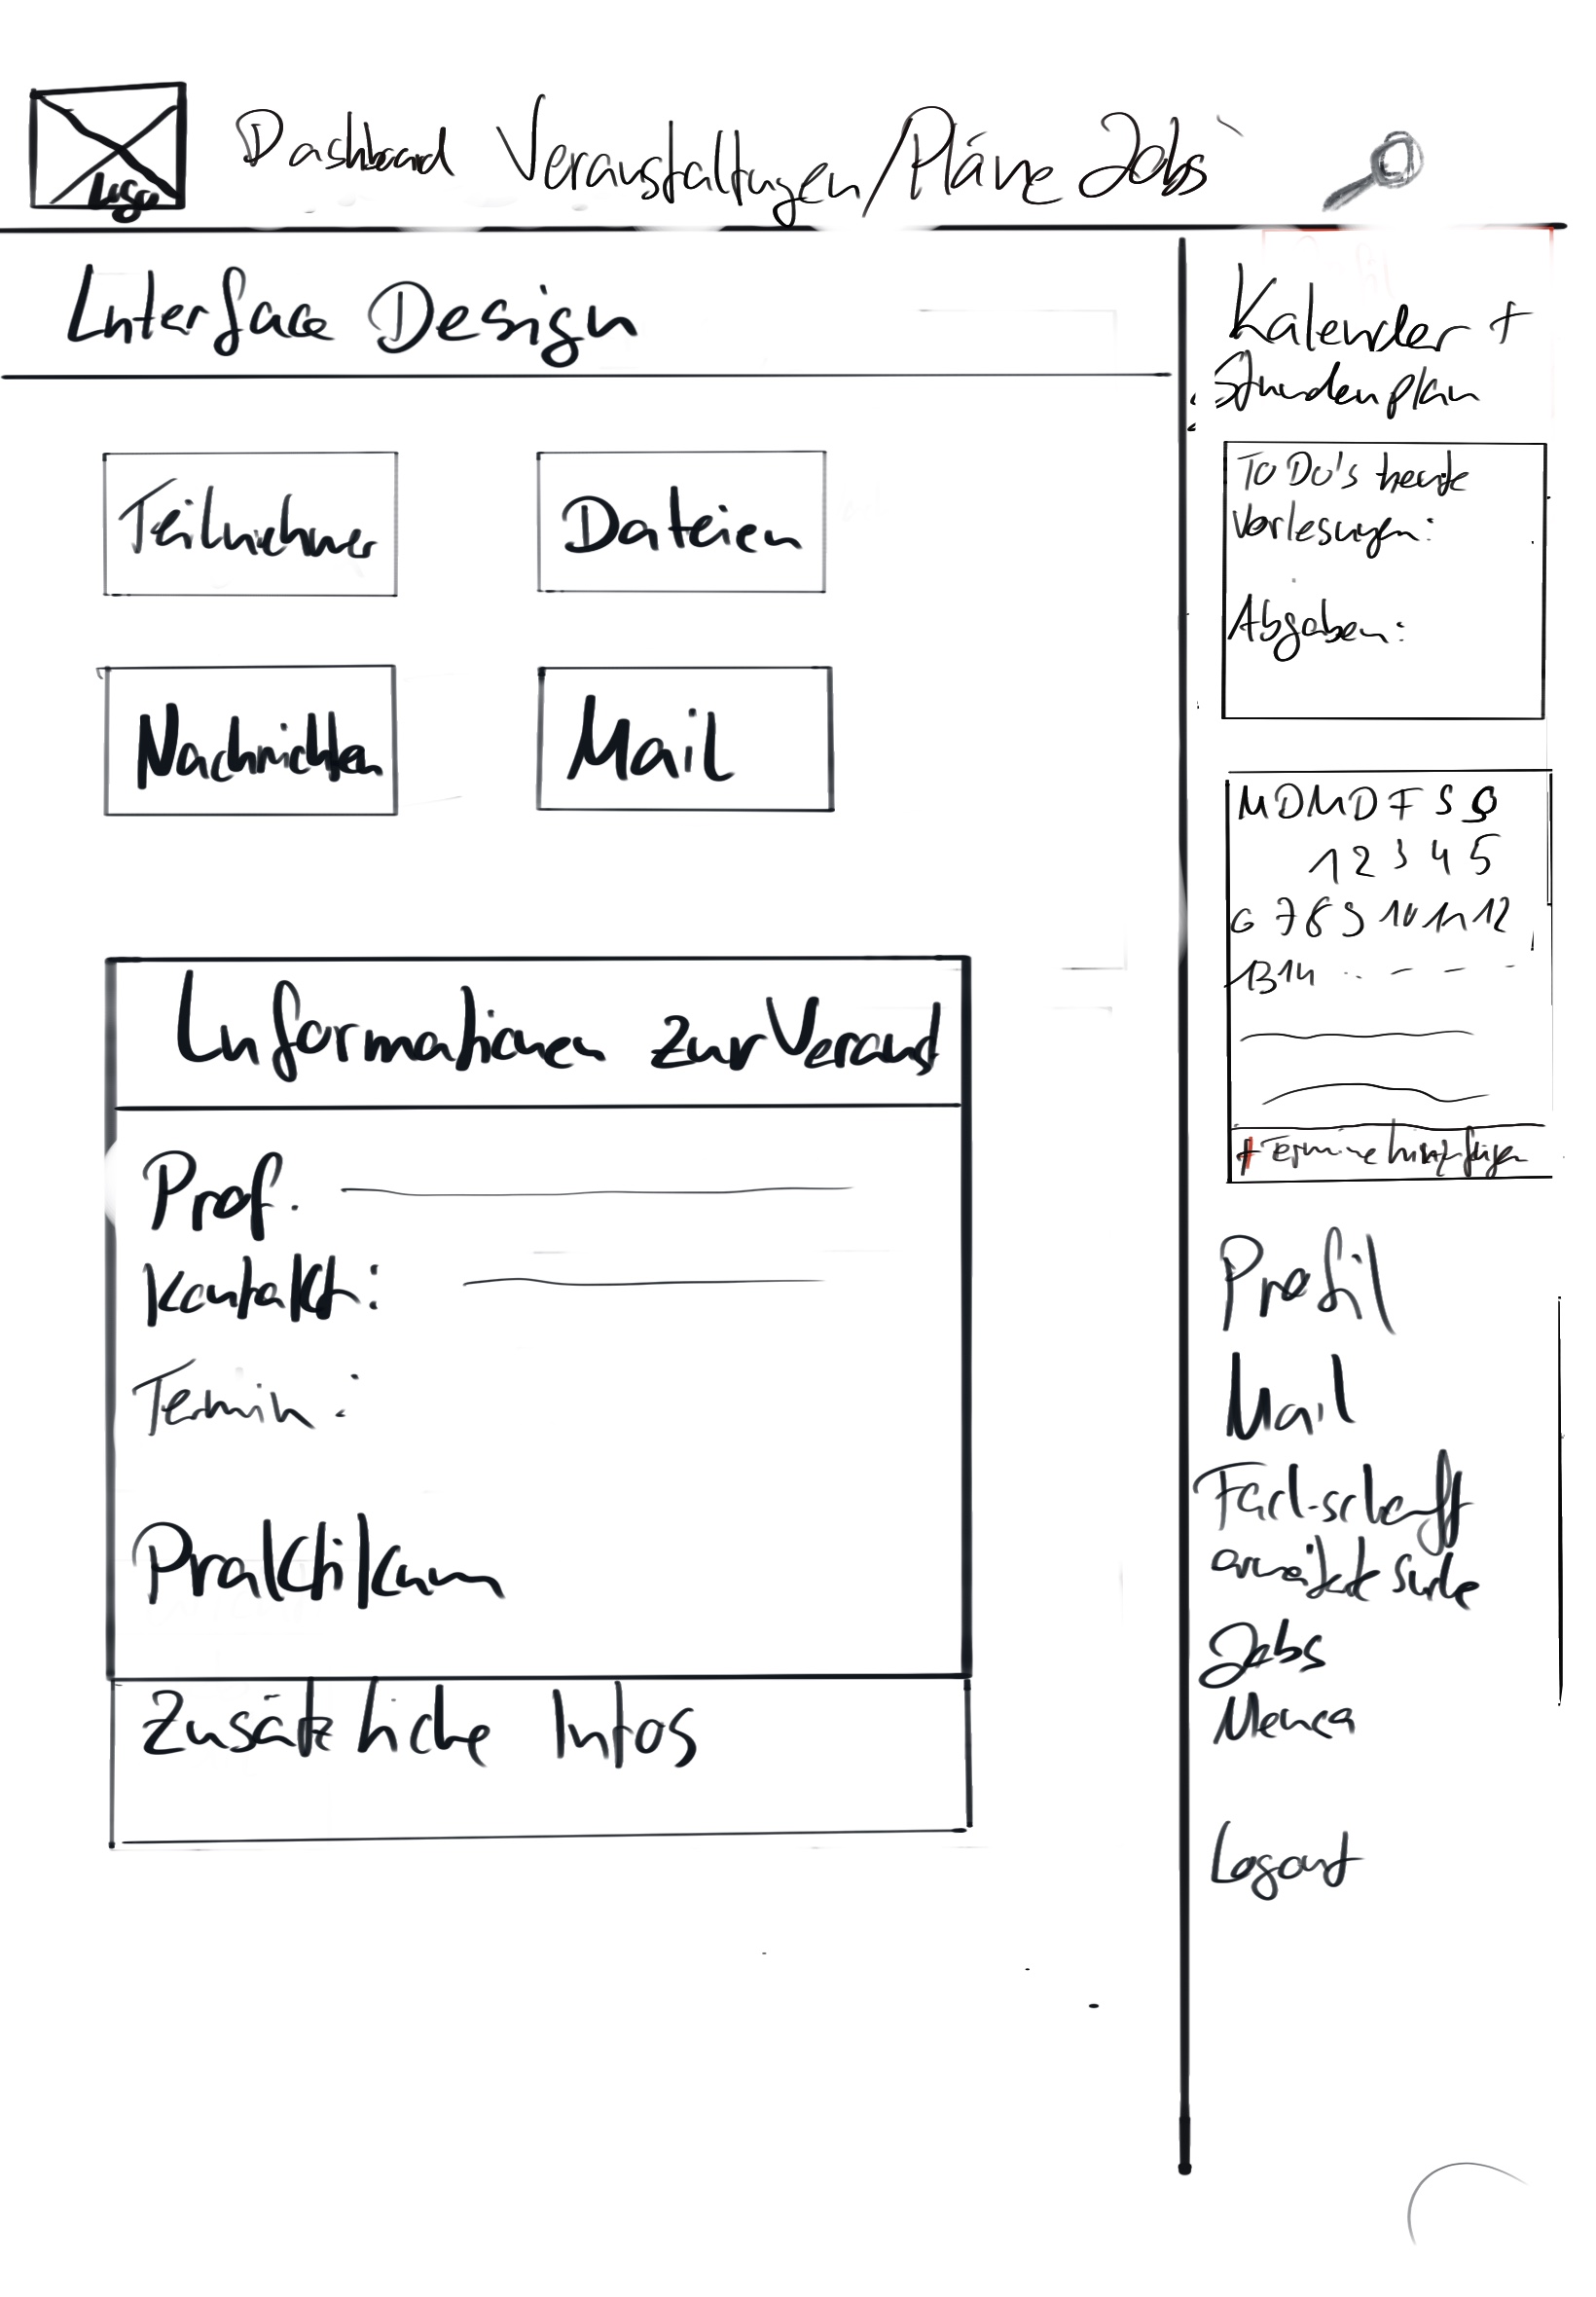 Logo
Dashboard Veranstaltungen/Pläne Jobs
Interface Design
Teilnehmer
Dateien
Nachrichten
Mail
Informationen zur Veranst
Prof.
Kontakt:
Termin:
Praktikum
Zusätzliche Infos
Kalender +
Stundenplan
To Do's heute
Vorlesungen:
Abgaben:
M D M D F S S
1 2 3 4 5
6 7 8 9 10 11 12
13 14
+ Termine hinzufügen
Profil
Mail
Fachschaft
erweiterte Suche
Jobs
Mensa
Logout